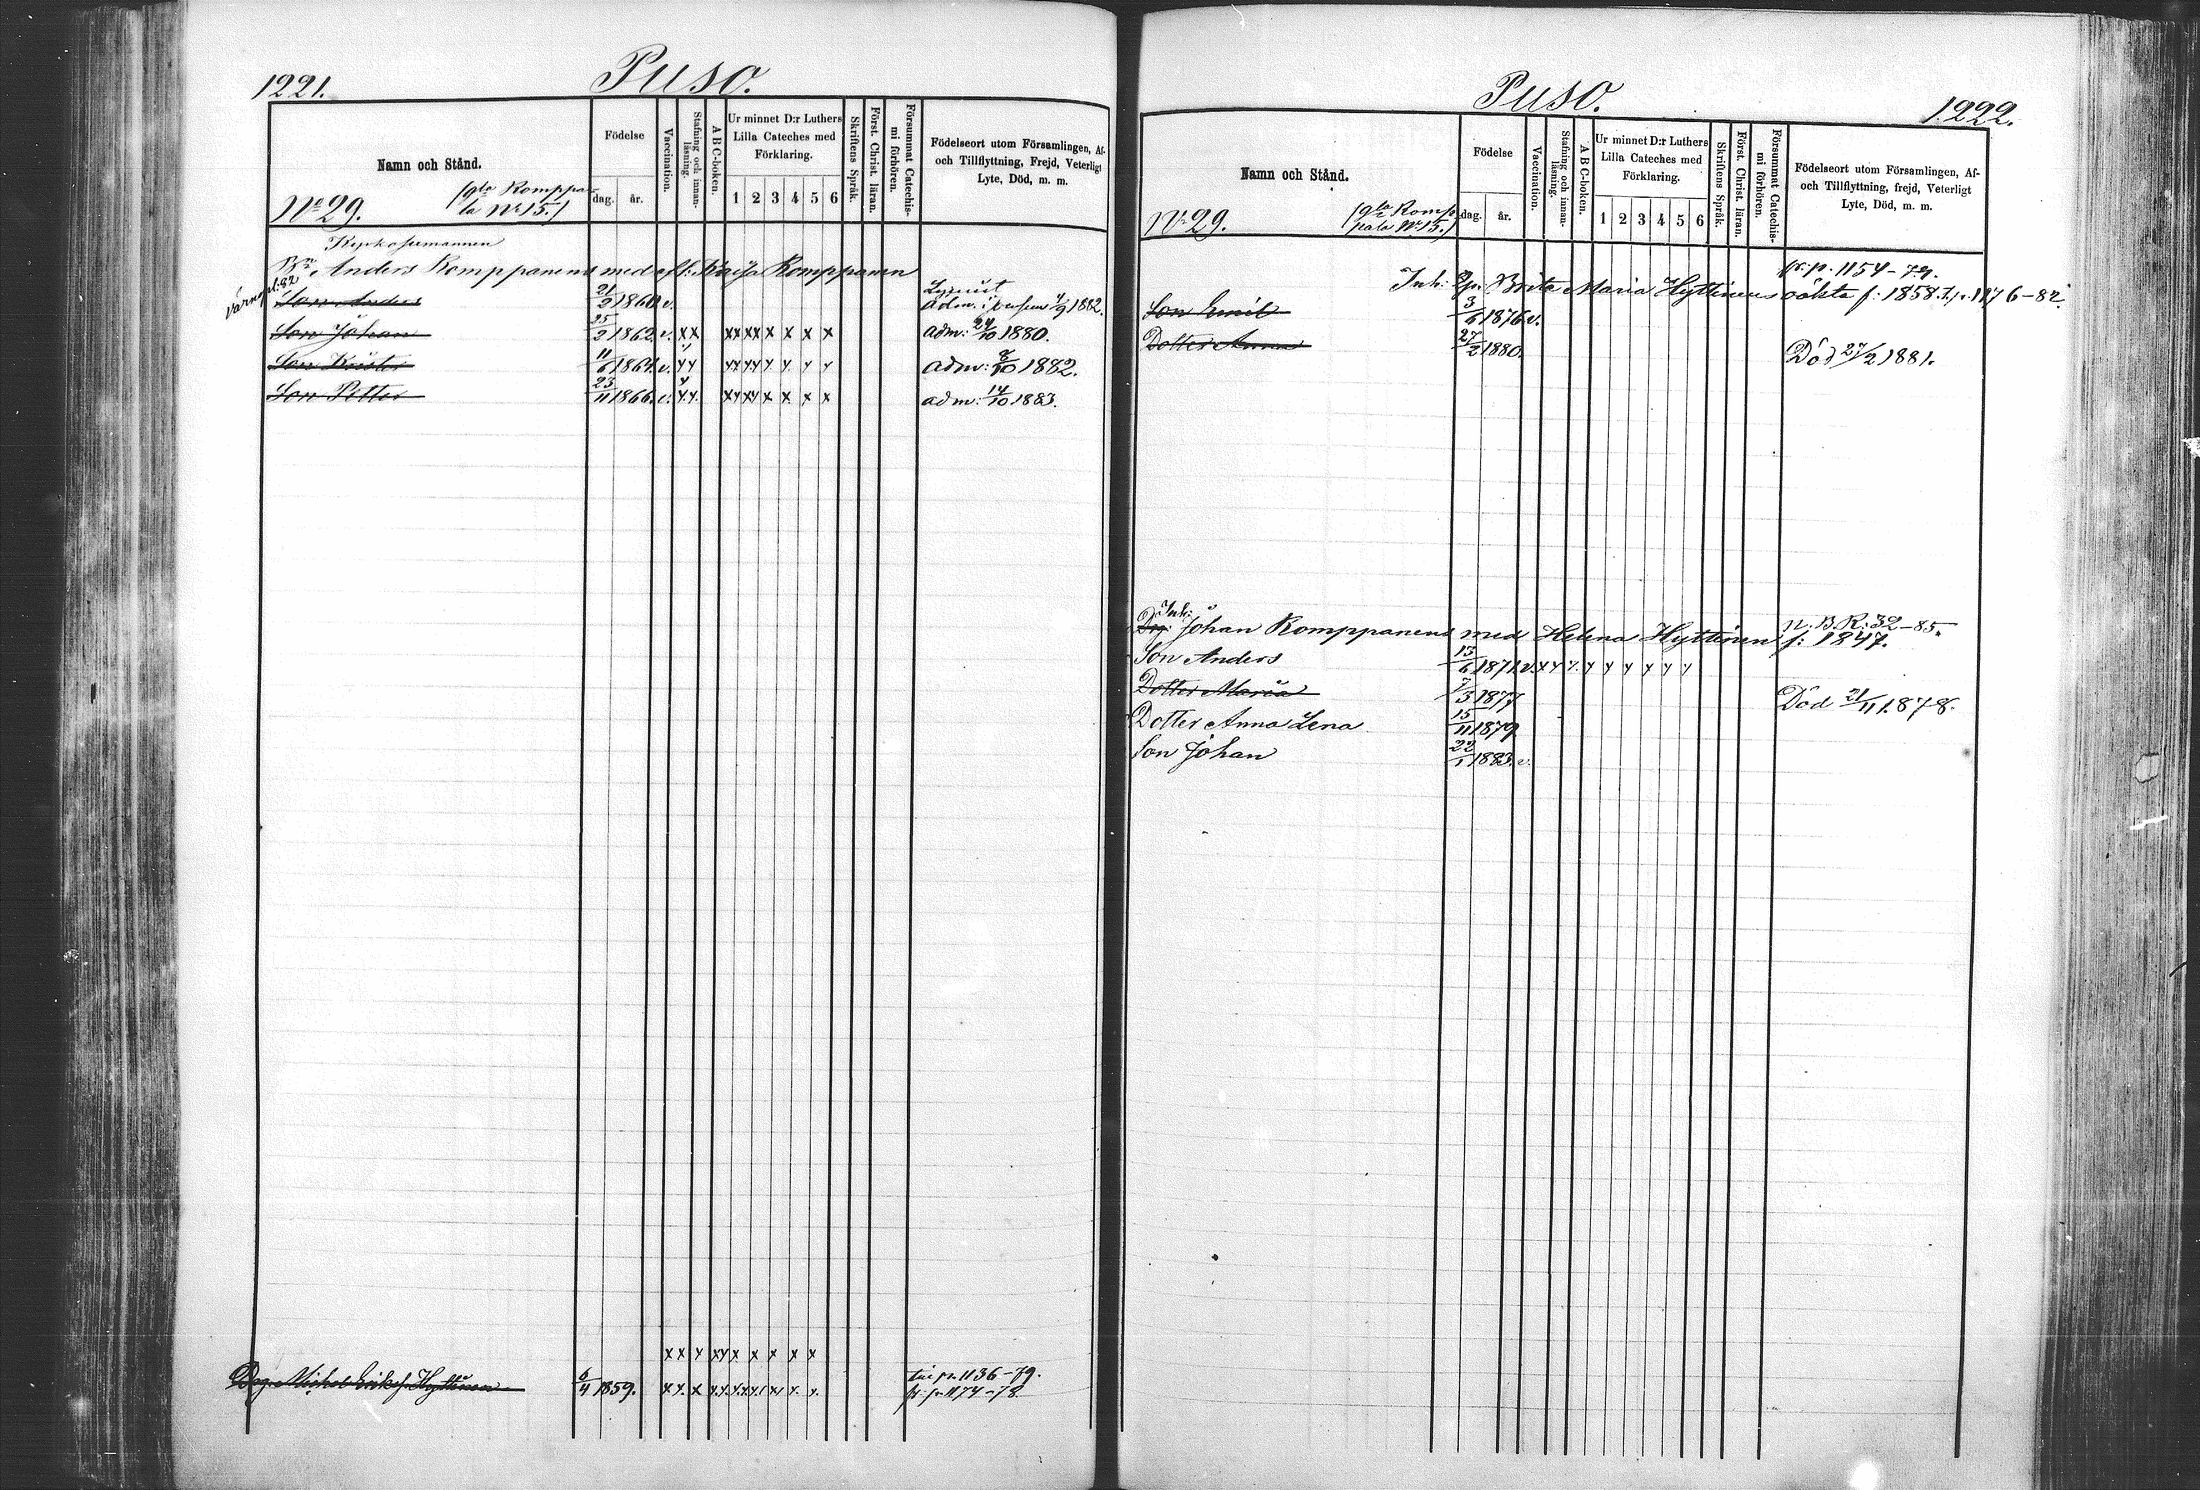 1221.
Puso.
Namn och Stånd.
Födelse
dag.
år.
Vaccination.
Stafning och innan-läsning.
ABC-boken.
Ur minnet D:r Luthers
Lilla Cateches med
Förklaring.
1 2 3 4 5 6
Skriftens Språk.
Först. Christ. läran.
Försummat Catechis-mi förhören.
Födelseort utom Församlingen, Af-
och Tillflyttning, Frejd, Veterligt
Lyte, Död, m. m.
No 29.
(gla Komppa-
la No 15.)
Anders Komppanens med Kaisa Komppanen
Son Anders 21/2 1860. v. 1882.
Son Johan 25/2 1862. v. x x x x x x x x x x adm: 24/10 1880.
Son Krister 11/6 1864. v. adm: 8/10 1882.
Son Petter 23/11 1866. v. adm: 14/10 1883.
x x x x x x x x x x
Drg. Michel Eriks. Hyttinen 6/4 1859. till p. 1136-79.
fr. p. 1174-78.
Puso.
1222.
Namn och Stånd.
Födelse
dag.
år.
Vaccination.
Stafning och innan-läsning.
ABC-boken.
Ur minnet D:r Luthers
Lilla Cateches med
Förklaring.
1 2 3 4 5 6
Skriftens Språk.
Först. Christ. läran.
Försummat Catechis-mi förhören.
Födelseort utom Församlingen, Af-
och Tillflyttning, frejd, Veterligt
Lyte, Död, m. m.
No 29.
(gla Komp-
pala No 15.)
fr. p. 1154-79.
Inh: Brita Maria Hyttinens oäkta f: 1858. 1176-82.
Son Emil 3/6 1876. v.
Dotter Anna 27/2 1880. Död 27/2 1881.
Inh:
Drg: Johan Komppanens med Helena Hyttinen f: 1847. n. B. R: 32-85.
Son Anders 13/6 1871. v.
Dotter Maria 7/3 1877 Död 21/11 1878.
Dotter Anna Lena 15/11 1879
Son Johan 22/1 1883. v.